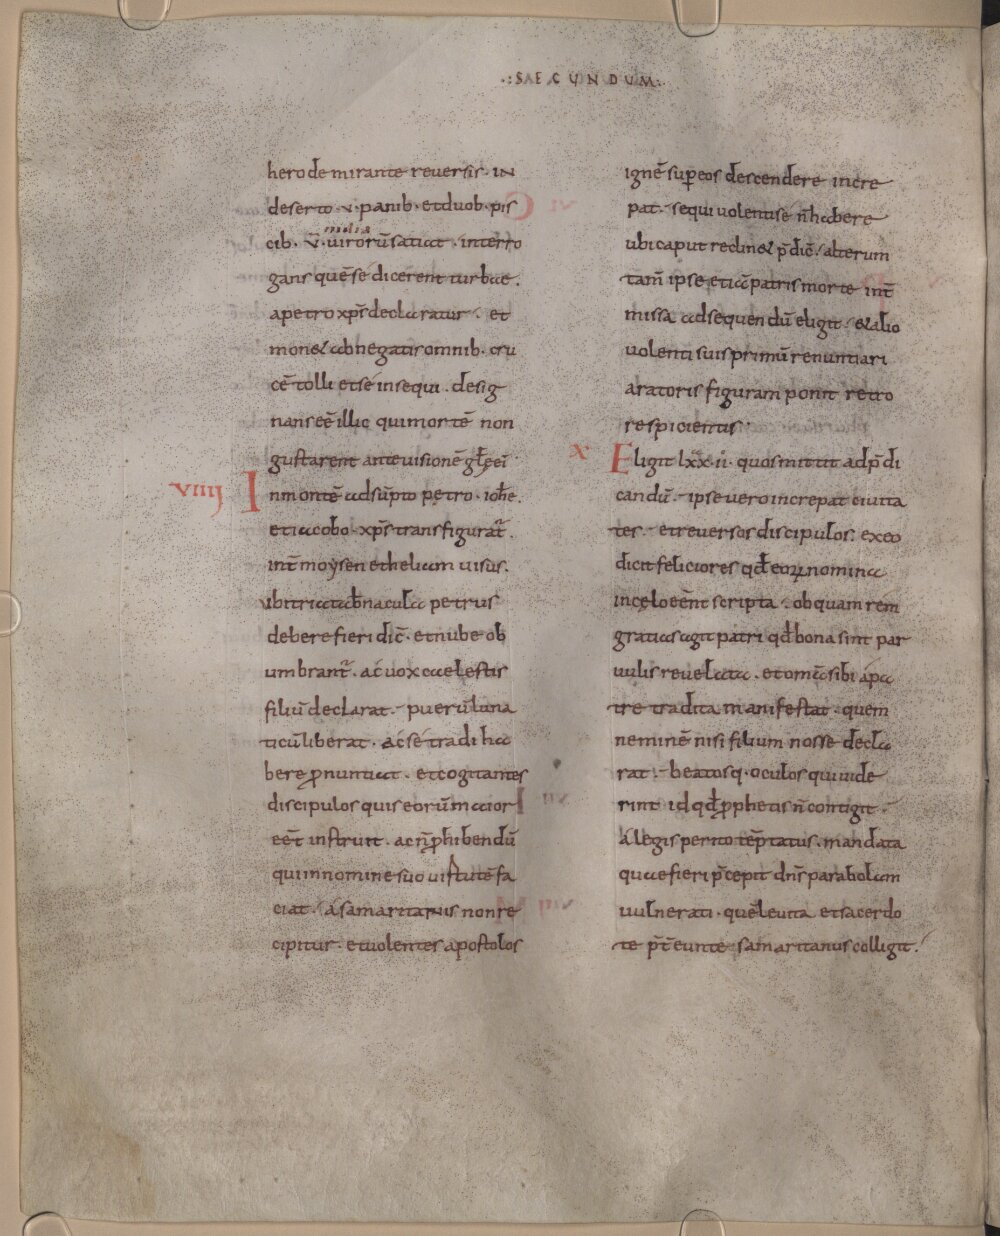 .:SAECUNDUM:.
herode mirante reuersis · in
deserto · v · panib · et duob · pis
milia
cib · v̄ · uirorū satiat · interro
gans quē sé dicerent turbae .
a petro xp̄s declaratus · et
monet abnegatis omnib · cru
cē tolli et sé insequi . desig
nans eḗ illic qui mortē non
gustarent ante uisionē gl̄ę ei
VIIII In montē adsūpto petro · ioh̄e .
et iacobo · xp̄s transfigurat̄ .
int̄ moysen et heliam uisus .
ubi tria tab̄nacula petrus
debere fieri dic̄ · et nube ob
umbrant̄ . ac uox caelestis
filiū declarat . puerū luna
ticū liberat . ac sé tradi ha
bere p̄nuntiat . et cogitantes
discipulos quis eorū maior
eēt instruit . ac n̄ phibendū
qui in nomine suo uirtutē fa
ciat . A samaritanis non re
cipitur . et uolentes apostolos
ignē sup eos descendere incre
pat . sequi uolentisē n̄ habere
ubi caput reclinet p̄dic̄ . alterum
tam̄ ipse etiā patris morte int̄
missa ad sequendū eligit . et alio
uolenti suis primū renuntiari
aratoris figuram ponit retro
respicientis ·
X Eligit lxx · ii · quos mittit ad p̄di
candū . ipse uero increpat ciuita
tes . et reuersos discipulos . ex eo
dicit feliciores qđ eoꝝ nomina
in cęlo eēnt scripta . ob quam rem
gratias agit patri qđ bona sint par
uulis reuelata . et omīa sibi a pa
tre tradita manifestat . quem
neminē nisi filium nosse decla
rat . beatosq · oculos qui uide
rint id qđ pphetis n̄ contigit .
A legis perito tēptatus . mandata
quae fieri p̄cepit dn̄s parabolam
uulnerati . quē leuita et sacerdo
te p̄t̄eunte samaritanus colligit .